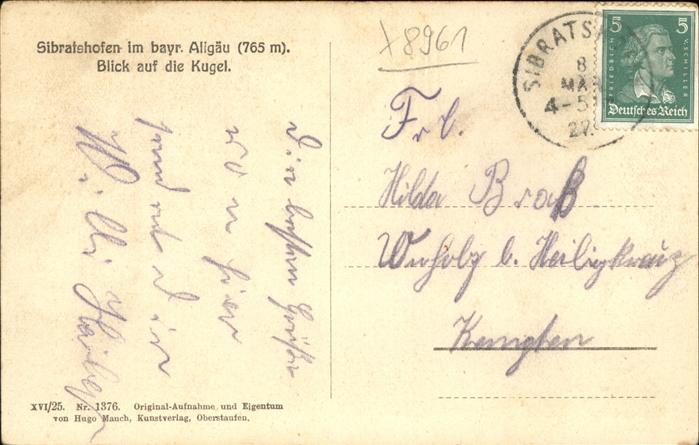 Sibratshofen im bayr. Allgäu (765 m).
Blick auf die Kugel.
Die besten Grüße
von hier
sendet Dir
Willi
XVI/25. Nr. 1376. Original-Aufnahme und Eigentum
von Hugo Mauch, Kunstverlag, Oberstaufen.
8961
SIBRATS
8
MAR
4-5
27
5 5
FRIEDRICH V. SCHILLER
Deutsches Reich
Frl.
Hilda Braß
b. Heiligkreuz
Kempten